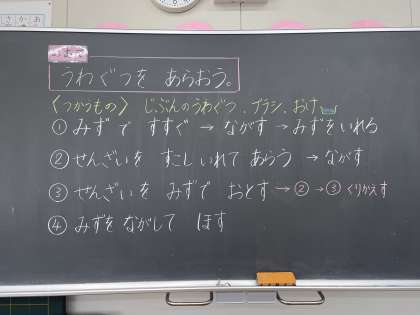 めあて
うわぐつを あらおう。
〈つかうもの〉 じぶんのうわぐつ、ブラシ、おけ
① みず で すすぐ → ながす → みずをいれる
② せんざいを すこしいれて あらう → ながす
③ せんざいを みずで おとす → ② → ③ くりかえす
④ みずを ながして ほす